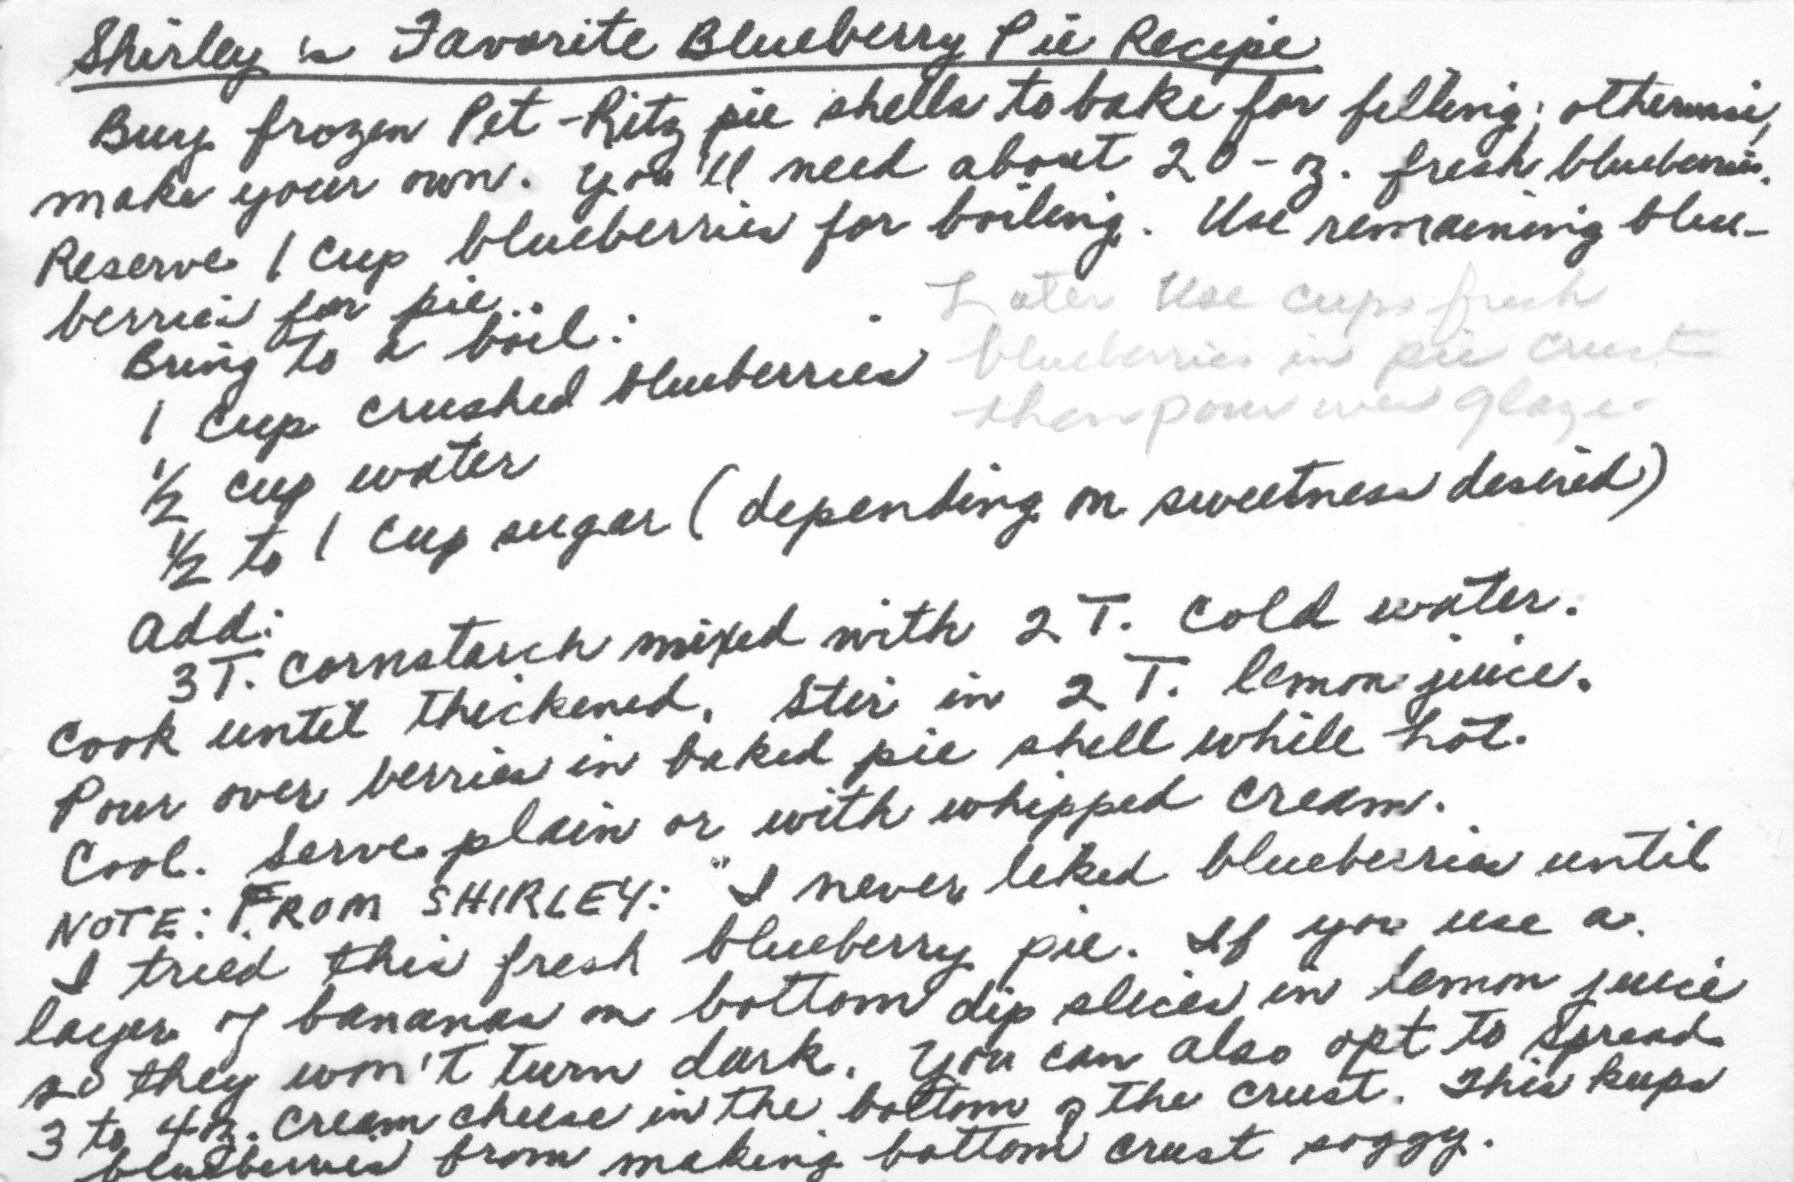 Shirley's Favorite Blueberry Pie Recipe
Buy frozen Pet-Ritz pie shells to bake for filling; otherwise,
make your own. You'll need about 20-oz. fresh blueberries.
Reserve 1 cup blueberries for boiling. Use remaining blue-
berries for pie.
Later Use cups fresh
blueberries in pie crust
then pour over glaze.
Bring to a boil:
1 cup crushed blueberries
1/2 cup water
1/2 to 1 cup sugar (depending on sweetness desired)
Add:
3 T. cornstarch mixed with 2 T. cold water.
Cook until thickened. Stir in 2 T. lemon juice.
Pour over berries in baked pie shell while hot.
Cool. Serve plain or with whipped cream.
NOTE: FROM SHIRLEY: "I never liked blueberries until
I tried this fresh blueberry pie. If you use a
layer of bananas on bottom dip slices in lemon juice
so they won't turn dark. You can also opt to spread
3 to 4 oz. cream cheese in the bottom of the crust. This keeps
blueberries from making bottom crust soggy.